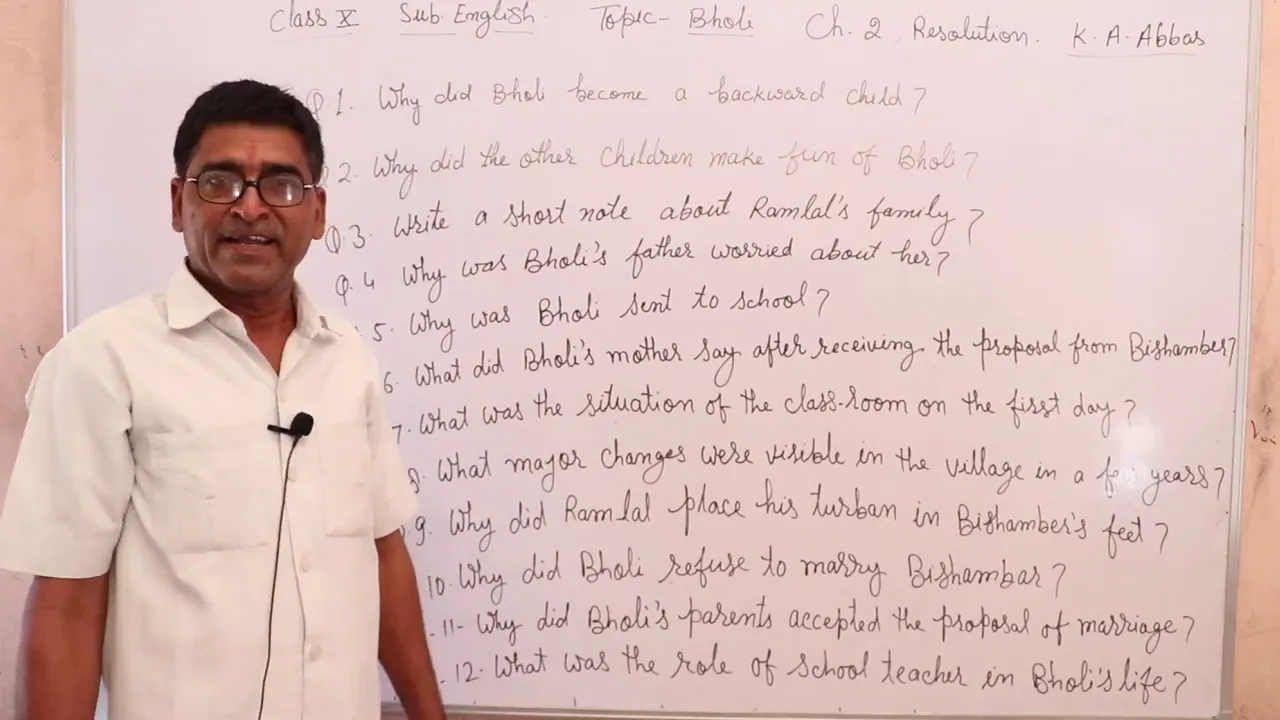 Class X Sub. English. Topic- Bholi Ch. 2 Resolution. K. A. Abbas
Q 1. Why did Bholi become a backward child?
2. Why did the other children make fun of Bholi?
Q.3. Write a short note about Ramlal's family?
Q. 4 Why was Bholi's father worried about her?
5. Why was Bholi sent to school?
6. What did Bholi's mother say after receiving the proposal from Bishamber?
7. What was the situation of the class-room on the first day?
8. What major changes were visible in the village in a few years?
9. Why did Ramlal place his turban in Bishamber's feet?
10. Why did Bholi refuse to marry Bishambar?
11- Why did Bholi's parents accepted the proposal of marriage?
12. What was the role of school teacher in Bholi's life?